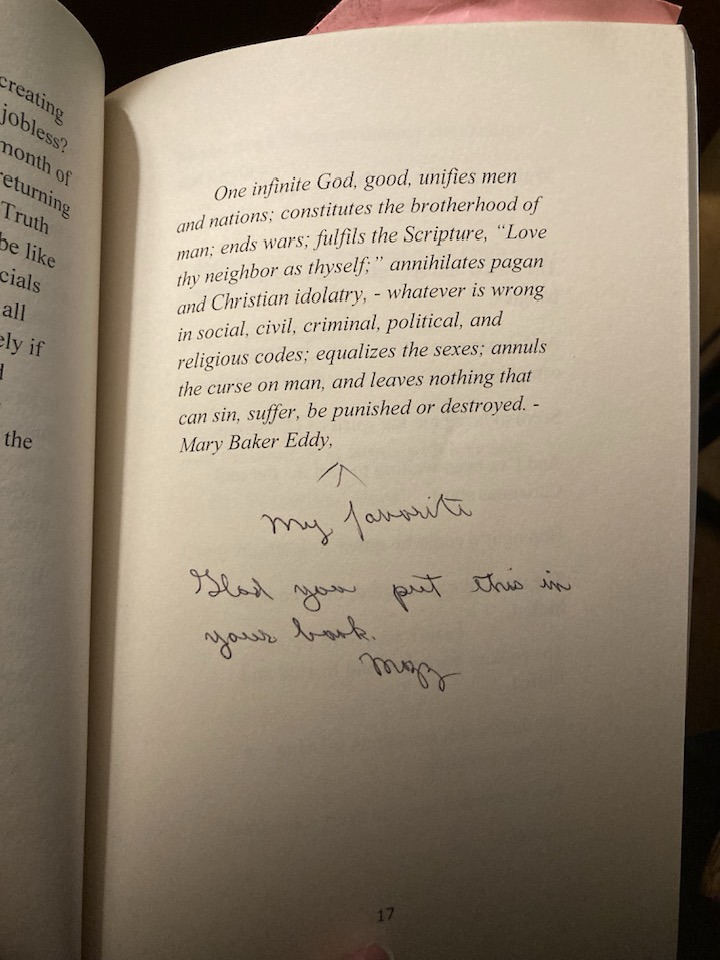 creating
jobless?
month of
returning
Truth
be like
cials
all
ely if
the
One infinite God, good, unifies men
and nations; constitutes the brotherhood of
man; ends wars; fulfils the Scripture, “Love
thy neighbor as thyself;” annihilates pagan
and Christian idolatry, - whatever is wrong
in social, civil, criminal, political, and
religious codes; equalizes the sexes; annuls
the curse on man, and leaves nothing that
can sin, suffer, be punished or destroyed. -
Mary Baker Eddy,
My favorite
Glad you put this in
your book.
17